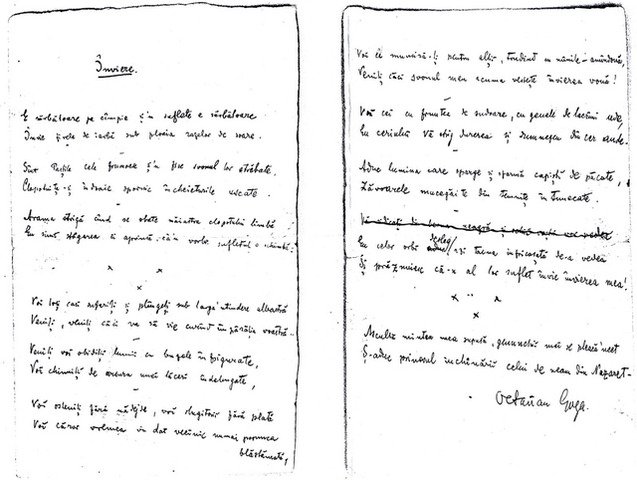 Înviere.
E sărbătoare pe câmpie și-n suflete e sărbătoare
Învie firele de iarbă sub ploaia razelor de soare.
Sînt Paștile cele frumoase și-n fire svonul lor străbate,
Clopotul și-a îndoaie spornic încheieturile uscate.
Arama strigă când se sbate măiastra clopotului limbă
Eu sînt strigarea
sufletul
Voi toți cari suferiți și plângeți sub larga 'ntindere albastră
Veniți, veniți căci va să vie curând împărăția voastră.
Veniți voi obidiții lumii cu buzele înfrigurate,
Voi chinuiți de arșura unei tăceri îndelungate,
Voi osteniți fără nădejde, voi slugitori fără plată
Voi căror vremea v-a dat vecinic numai porunca
blăstămată,
Voi ce munciră-ți pentru alții, trudind cu mânile-amândouă,
Veniți căci svonul meu acuma vestește învierea vouă!
Voi cei cu fruntea de sudoare, cu genele de lacrimi ude,
Eu cerului vă strig durerea și Dumnezeu din cer aude.
Aduc lumina care sparge și sfarmă capiști de păcate,
Zăvoarele mucegăite din temniți întunecate.
Eu celor orbi dezleg azi taina înfricoșată de-a vedea
Și prăznuiesc că-n al lor suflet învie învierea mea!
Ascultă mintea mea supusă, genunchii mei se pleacă 'ncet
Ș-aduc prinosul închinării celui de neam din Nazaret-
Octavian Goga.